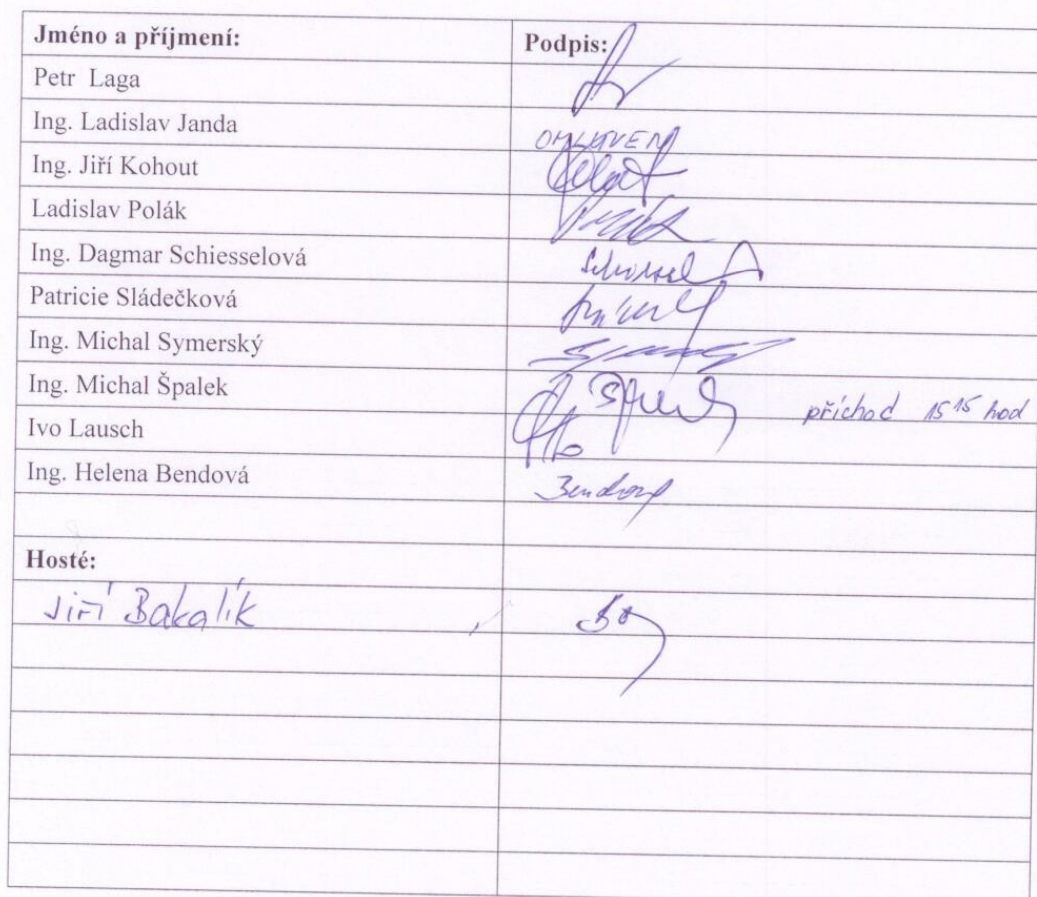 Jméno a příjmení: Podpis:
Petr Laga
Ing. Ladislav Janda OMLUVEN
Ing. Jiří Kohout
Ladislav Polák
Ing. Dagmar Schiesselová
Patricie Sládečková
Ing. Michal Symerský
Ing. Michal Špalek příchod 15 15 hod
Ivo Lausch
Ing. Helena Bendová Bendová
Hosté:
Jiří Bakalík